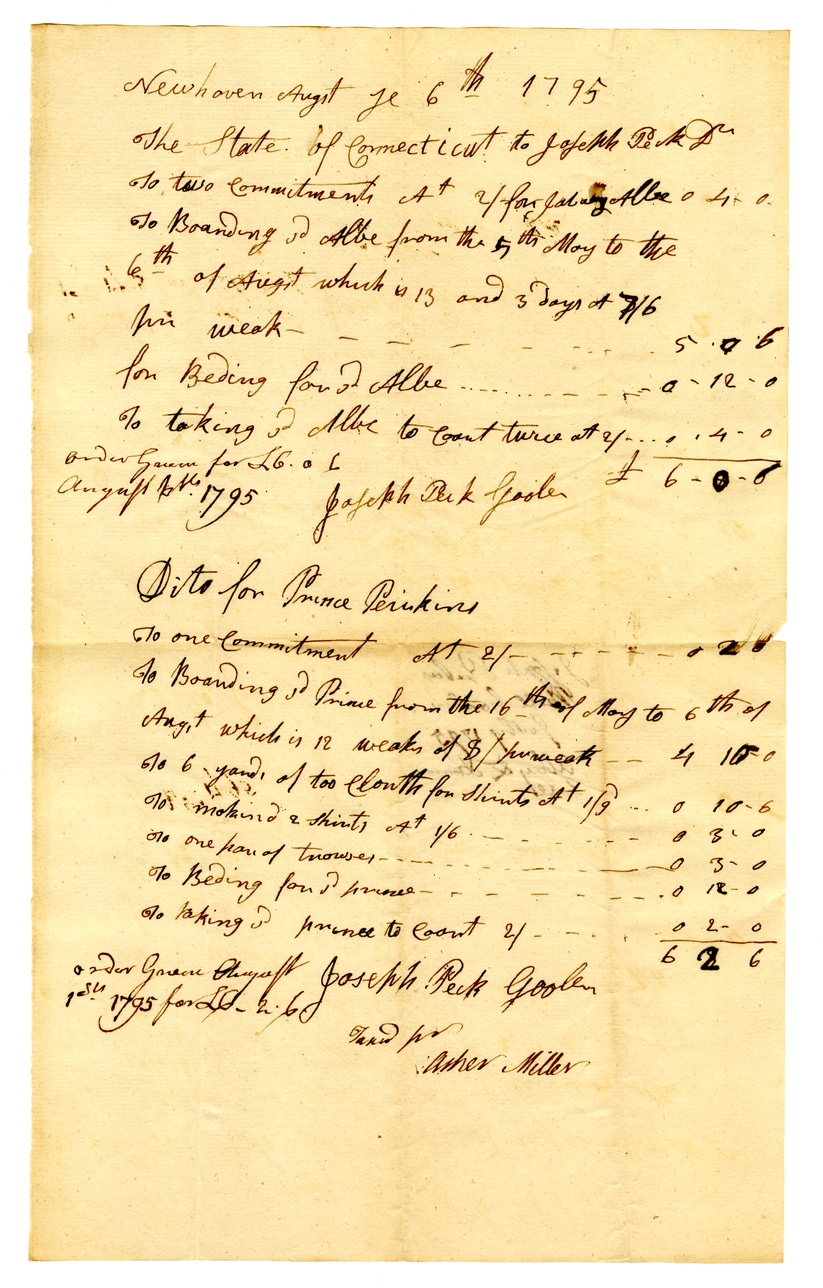 Newhaven Augst ye 6th 1795
The State of Connecticut to Joseph Peck Dr
To two Commitments At 2/ for Albe 0 4 - 0
To Boarding sd Albe from the 5th May to the
6th of Augst which is 13 and 3 days at 7/6
pr weak - - - - 5 - 0 6
for Beding for sd Albe ........ 0 - 12 - 0
To taking sd Albe to Court twice at 2/ - ... 0 . 4 - 0
£ 6 - 0 - 6
order Given for £6. 0 6
August 1795 Joseph Peck Gooler
Dito for Prince Perikins
To one Commitment At 2/ - - - - - - 0 2 0
To Boarding sd Prince from the 16th of May to 6th of
Augst which is 12 weaks at 8/ pr weak - - 4 16 - 0
To 6 yards of too Clouth for Shirts At 1/9 ... 0 10 - 6
To makind 2 Shirts At 1/6 - - - - 0 3 - 0
To one par of trouses - - - - - 0 3 - 0
To Beding for sd prince - - - - - . 0 12 - 0
To taking sd prince to Court 2/ - - - . 0 2 - 0
6 2 6
order Given August Joseph Peck Gooler
1795 for £6 - 2. 6
Taxed pr
Asher Miller